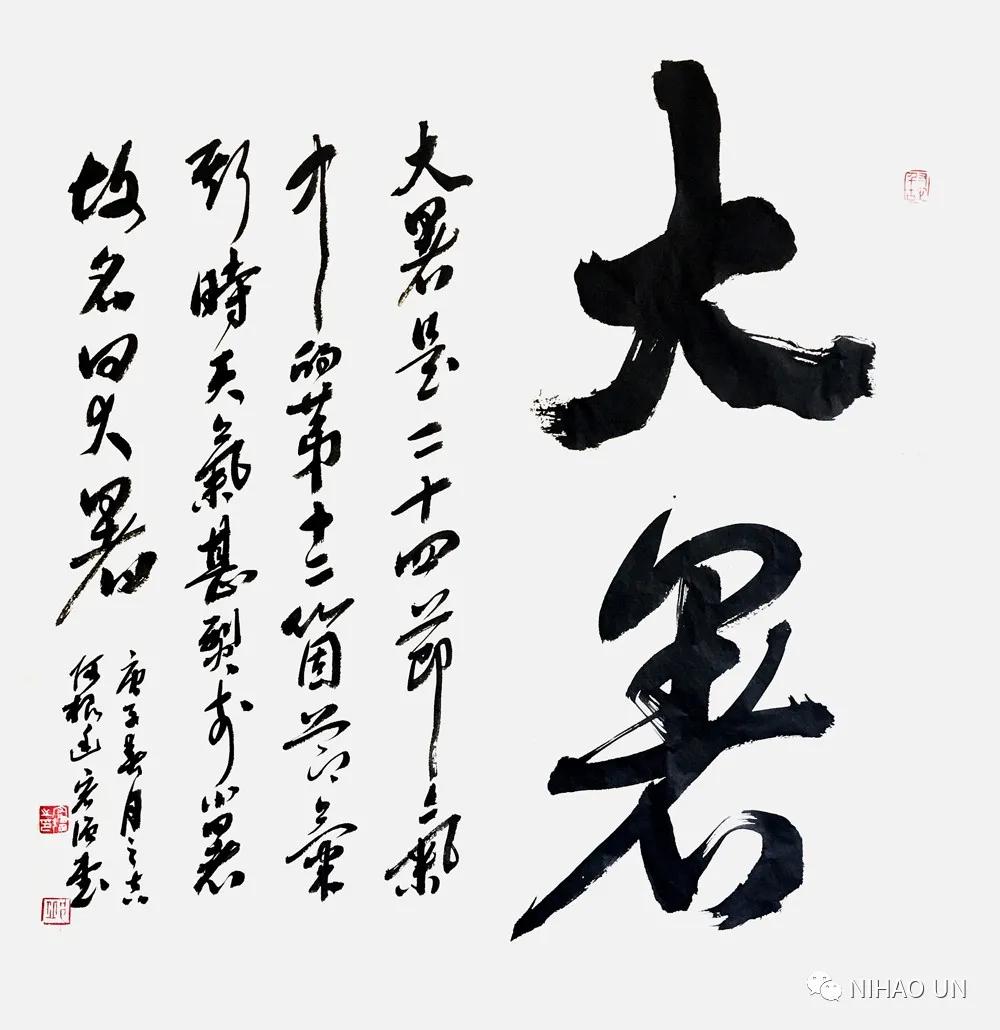 大暑
大暑是二十四節氣
中的第十二箇節氣
斯時天氣甚烈於小暑
故名曰大暑
庚子春月之吉
何根
NIHAO UN